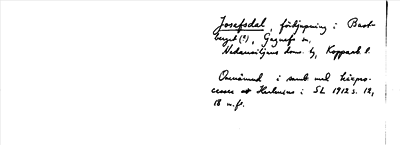 Josefsdal, förkjäpning i Bast-
berget (?), Gagnefs sn,
Nedansiljans doms. h., Kopparb. l.
Omnämnd i samb. med häxpro-
cesser av Hulmens i SL 1912 s. 12,
18 o.f.